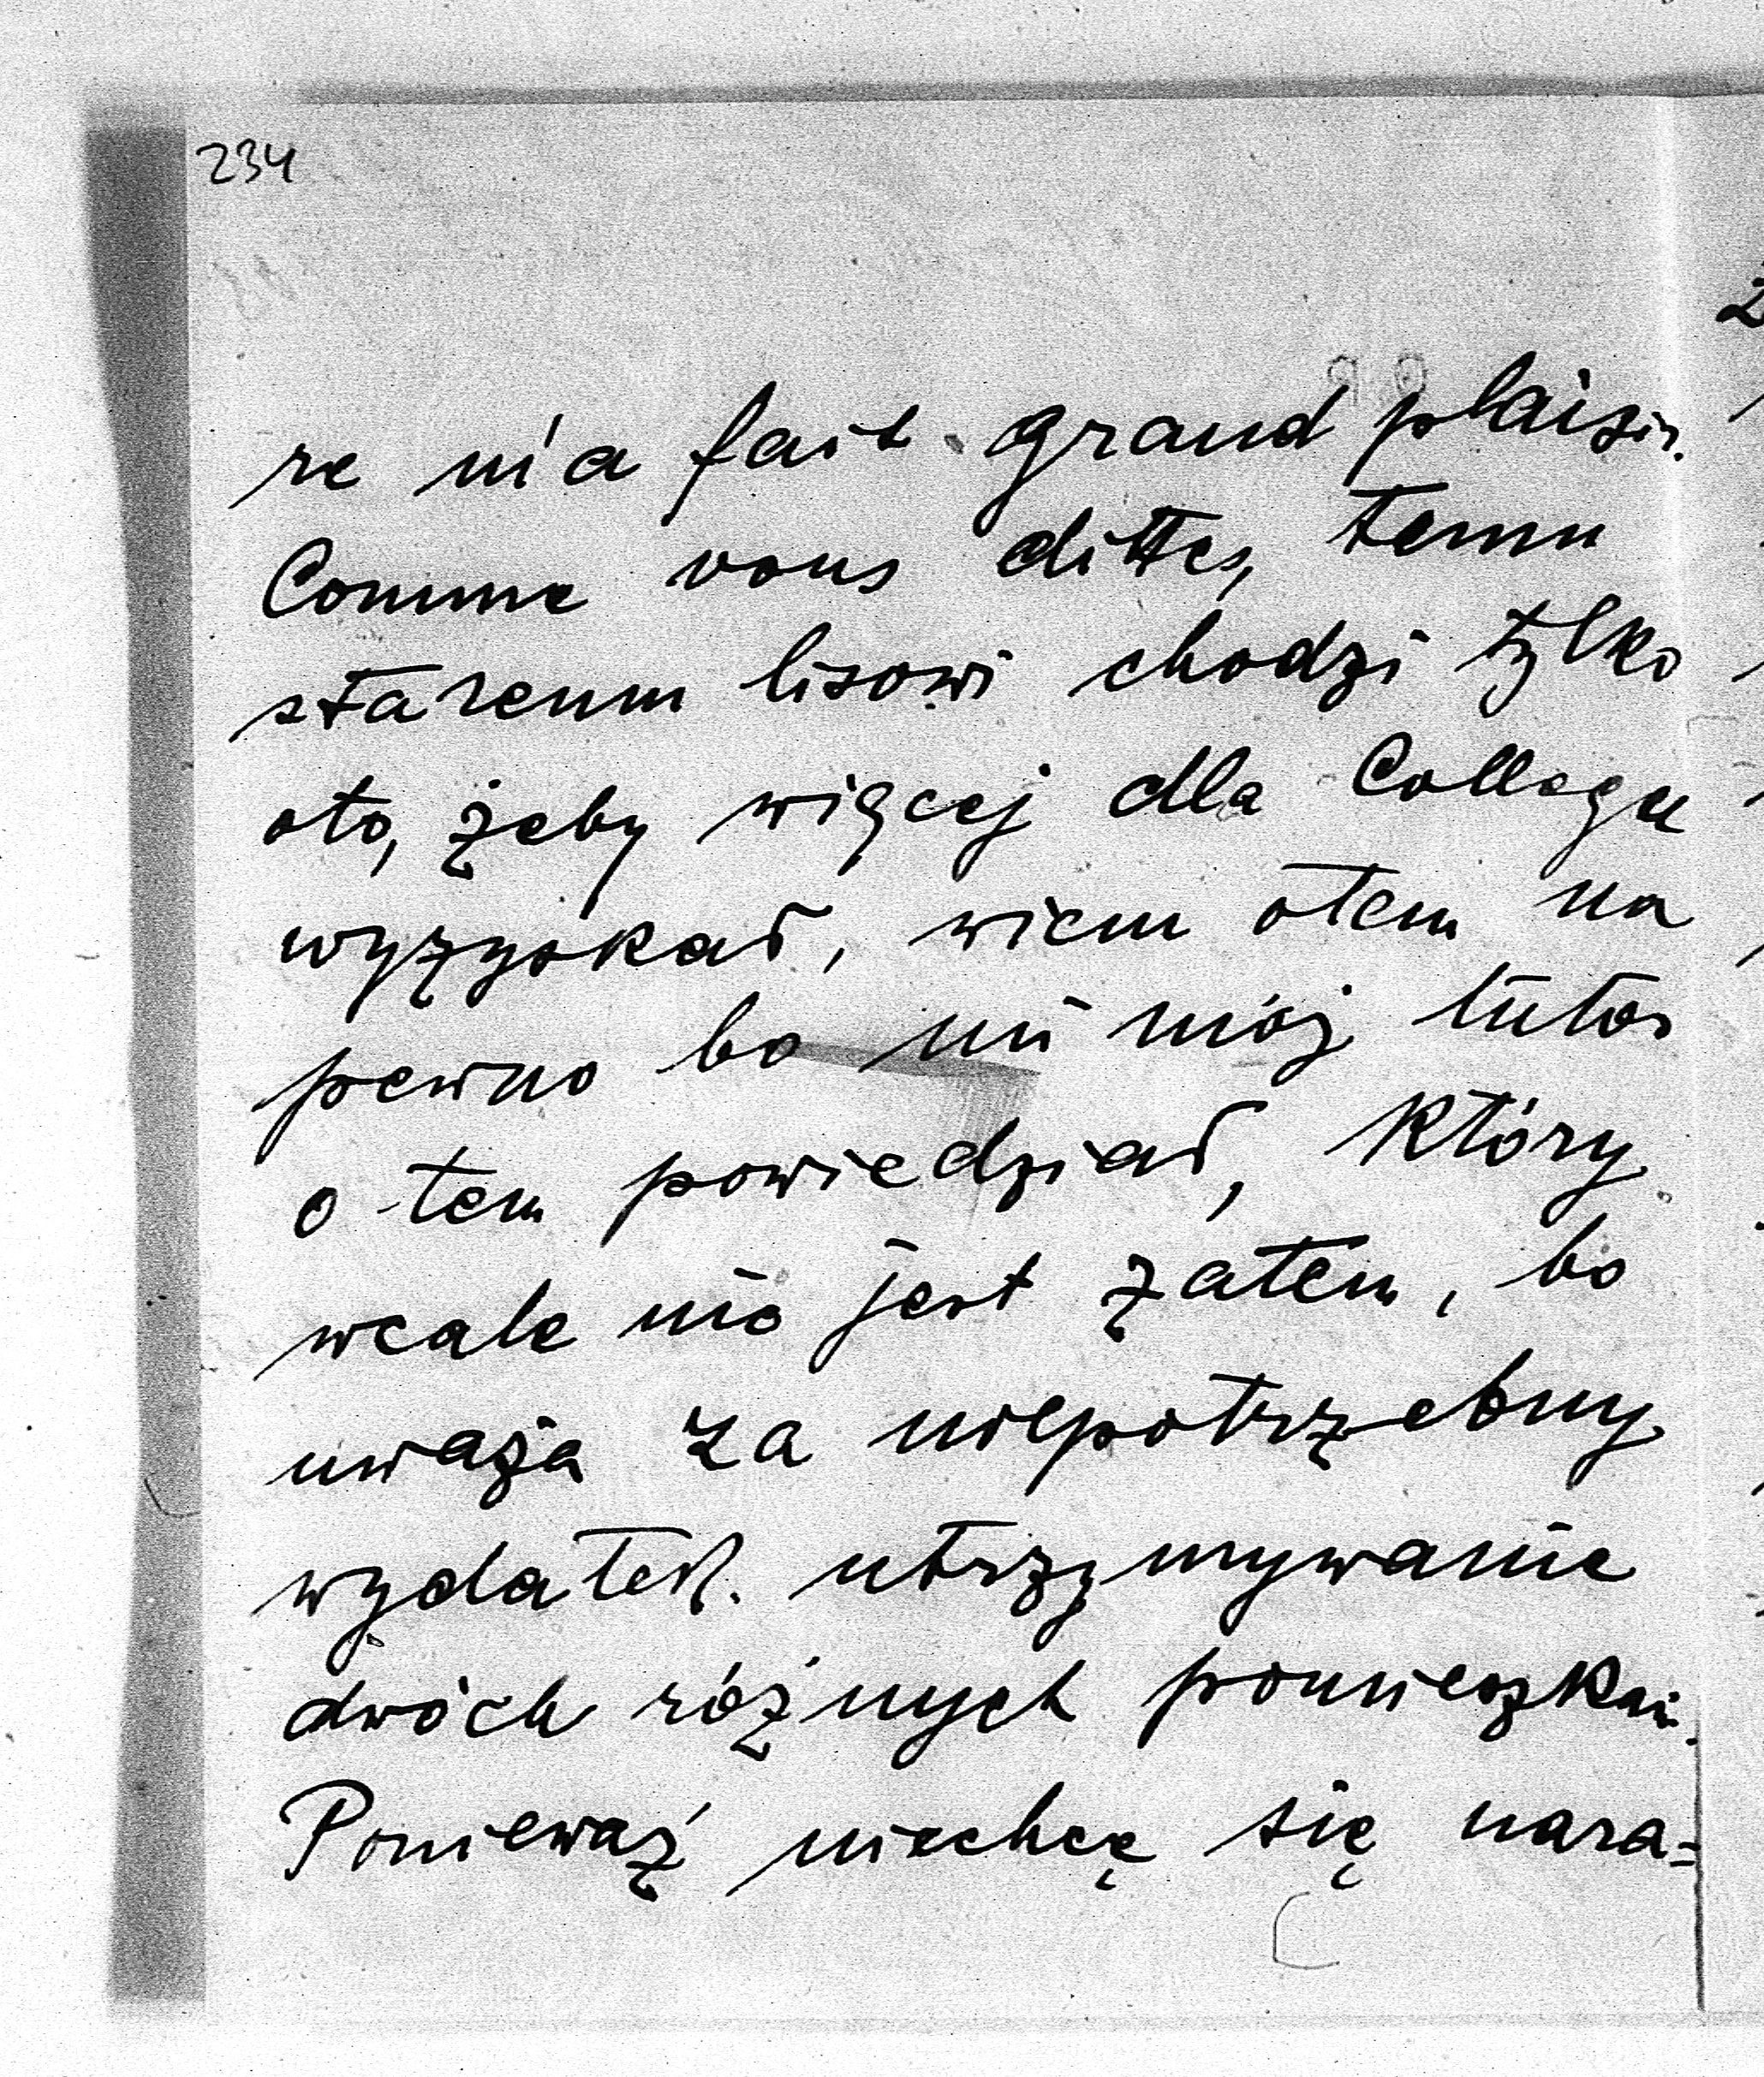 234
re m'a fait grand plaisir.
Comme vous dittes, temu
staremu lisowi chodzi tylko
oto, żeby więcej dla Collegu
wyzyskał, wiem otem na
pewno bo mi mój tutor
o tem powiedział, który
wcale nie jest zatem, bo
uważa za niepotrzebny
wydatek. utrzymywanie
dwóch różnych pomieszkań.
Ponieważ niechcę się nara=